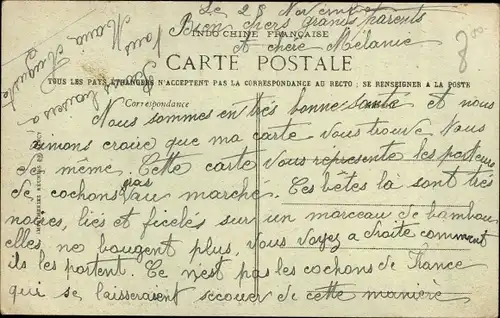 Le 28 Novembre
Bien chers grands parents
INDO-CHINE FRANÇAISE
A chère Mélanie
CARTE POSTALE
TOUS LES PAYS ÉTRANGERS N'ACCEPTENT PAS LA CORRESPONDANCE AU RECTO; SE RENSEIGNER A LA POSTE
Correspondance
Nous sommes en très bonne santé et nous
aimons croire que ma carte vous trouve
de même. Cette carte vous représente les porteurs
de cochons au marché. Ces bêtes là sont très
noires, liés et ficelés sur un morceau de bambou,
elles ne bougent plus, vous voyez a droite comment
ils les portent. Ce n'est pas les cochons de France
qui se laisseraient secouer de cette manière